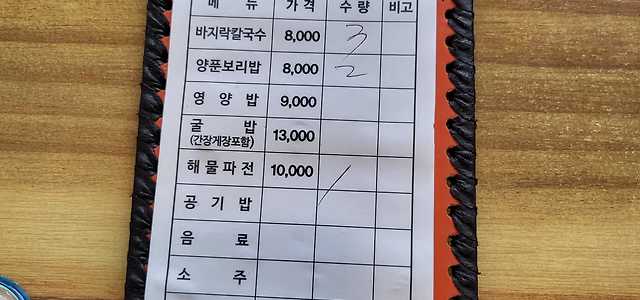 메 뉴 가 격 수 량 비고
바지락칼국수 8,000 3
양푼보리밥 8,000 2
영 양 밥 9,000
굴 밥 13,000
(간장게장포함)
해물파전 10,000 /
공 기 밥
음 료
소 주